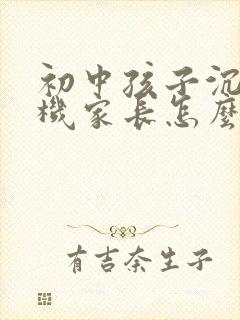 初中孩子沉
機家長怎麼
有吉奈生子